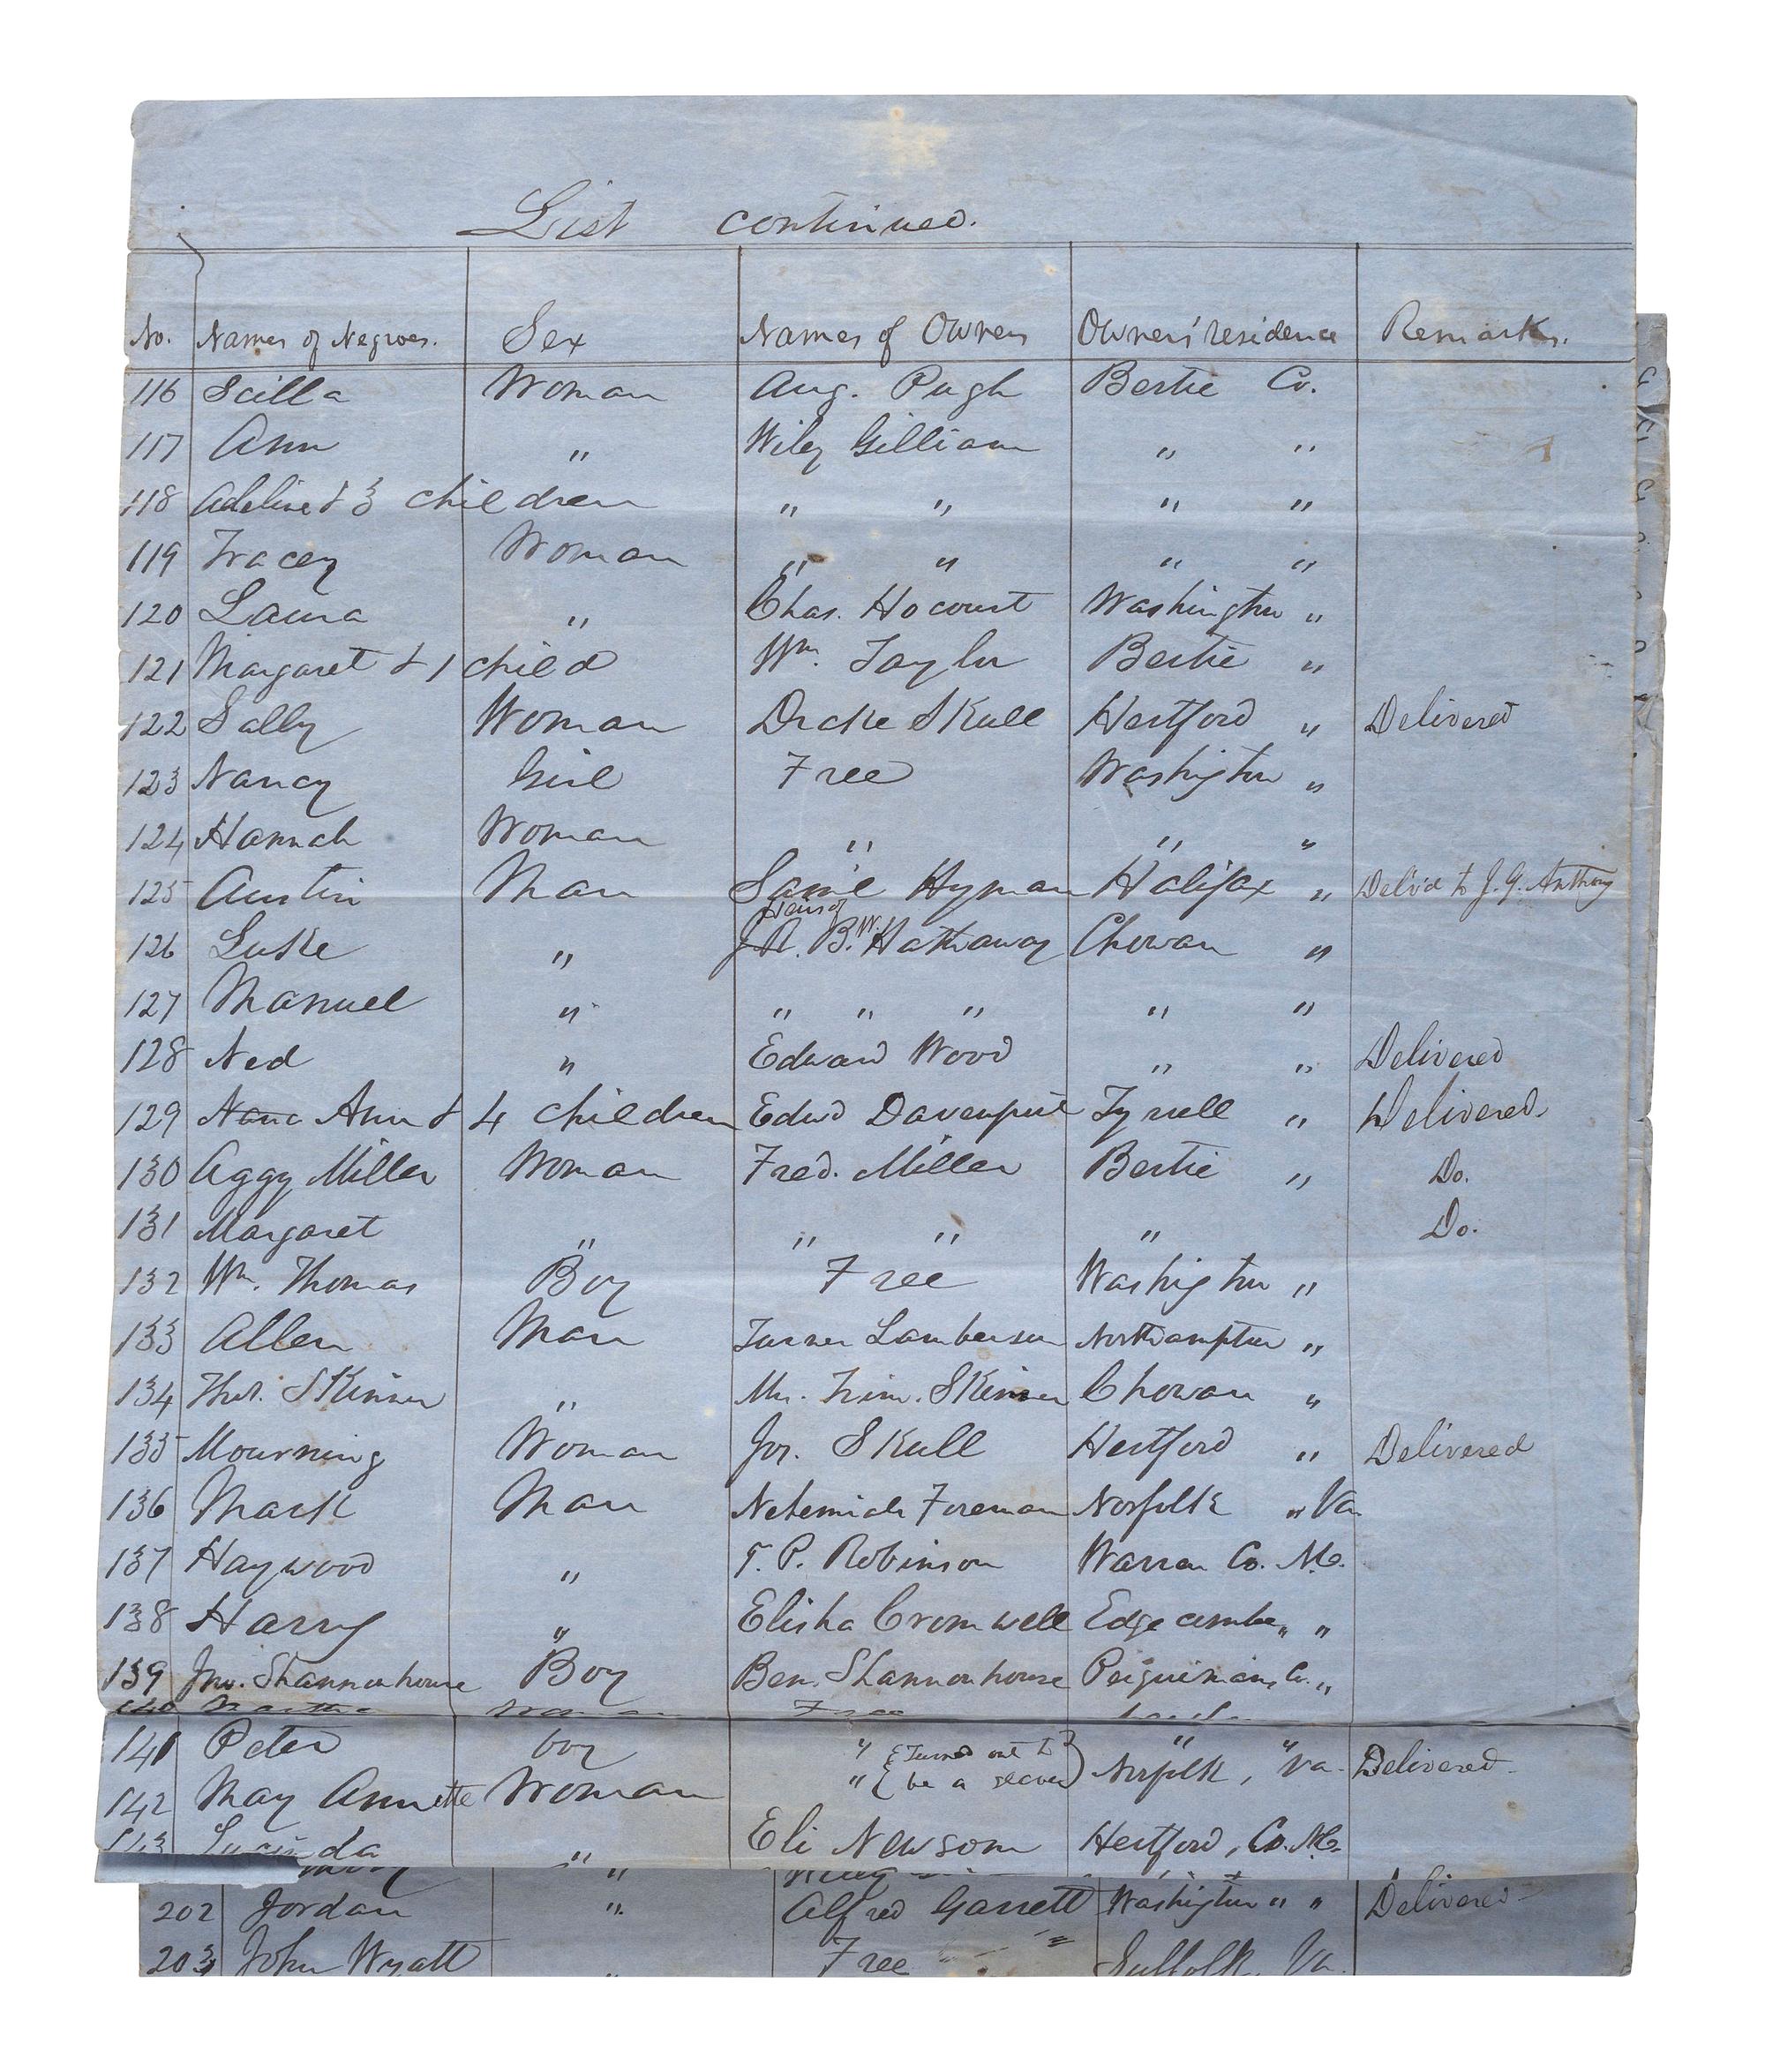 List continued.
No. Names of Negroes. Sex Names of Owners Owners' residence Remarks.
116 Scilla Woman Aug. Pugh Bertie Co.
117 Ann " Wiley Gilliam " "
118 Adeline & 3 children " " " "
119 Tracey Woman " " " "
120 Laura " Chas. Hocourt Washington "
121 Margaret & 1 child Wm. Taylor Bertie "
122 Sally Woman Drake Skull Hertford " Delivered
123 Nancy Girl Free Washington "
124 Hannah Woman " " "
125 Austin Man Saml Hyman Halifax " Deliv'd to J. G. Anthony
Heirs of
126 Luke " J. R. B. W. Hathaway Chowan "
127 Manuel " " " " " "
128 Ned " Edward Wood " " Delivered
129 Nana Ann & 4 children Edwd Davenport Tyrrell " Delivered.
130 Aggy Miller Woman Fred. Miller Bertie " Do.
131 Margaret " " " " Do.
132 Wm. Thomas Boy Free Washington "
133 Allen Man Turner Lamberson Northampton "
134 Thos. Skinner " Mrs. Trim. Skinner Chowan "
135 Mourning Woman Jos. Skull Hertford " Delivered
136 Mark Man Nehemiah Foreman Norfolk " Va
137 Haywood " T. P. Robinson Warren Co. N.C.
138 Harry " Elisha Cromwell Edgecombe " "
139 Jno. Shannonhouse Boy Ben. Shannonhouse Perquimans Co. "
140 Free
141 Peter boy " { Turned out to } " "
142 May Annette Woman " { be a slave } Norfolk, Va. Delivered.
143 Lucinda " Eli Newsom Hertford, Co. N.C.
202 Jordan " Alfred Garrett Washington " " Delivered
203 John Wyatt " Free Suffolk, Va.